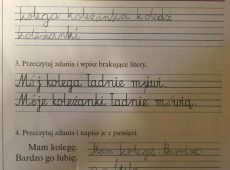 kolega koleżanka kolędź
koleżanki
3. Przeczytaj zdania i wpisz brakujące litery.
Mój kolega ładnie mówi.
Moje koleżanki ładnie mówią.
4. Przeczytaj zdania i napisz je z pamięci.
Mam kolegę. Mam kolegę Bardzo
Bardzo go lubię.